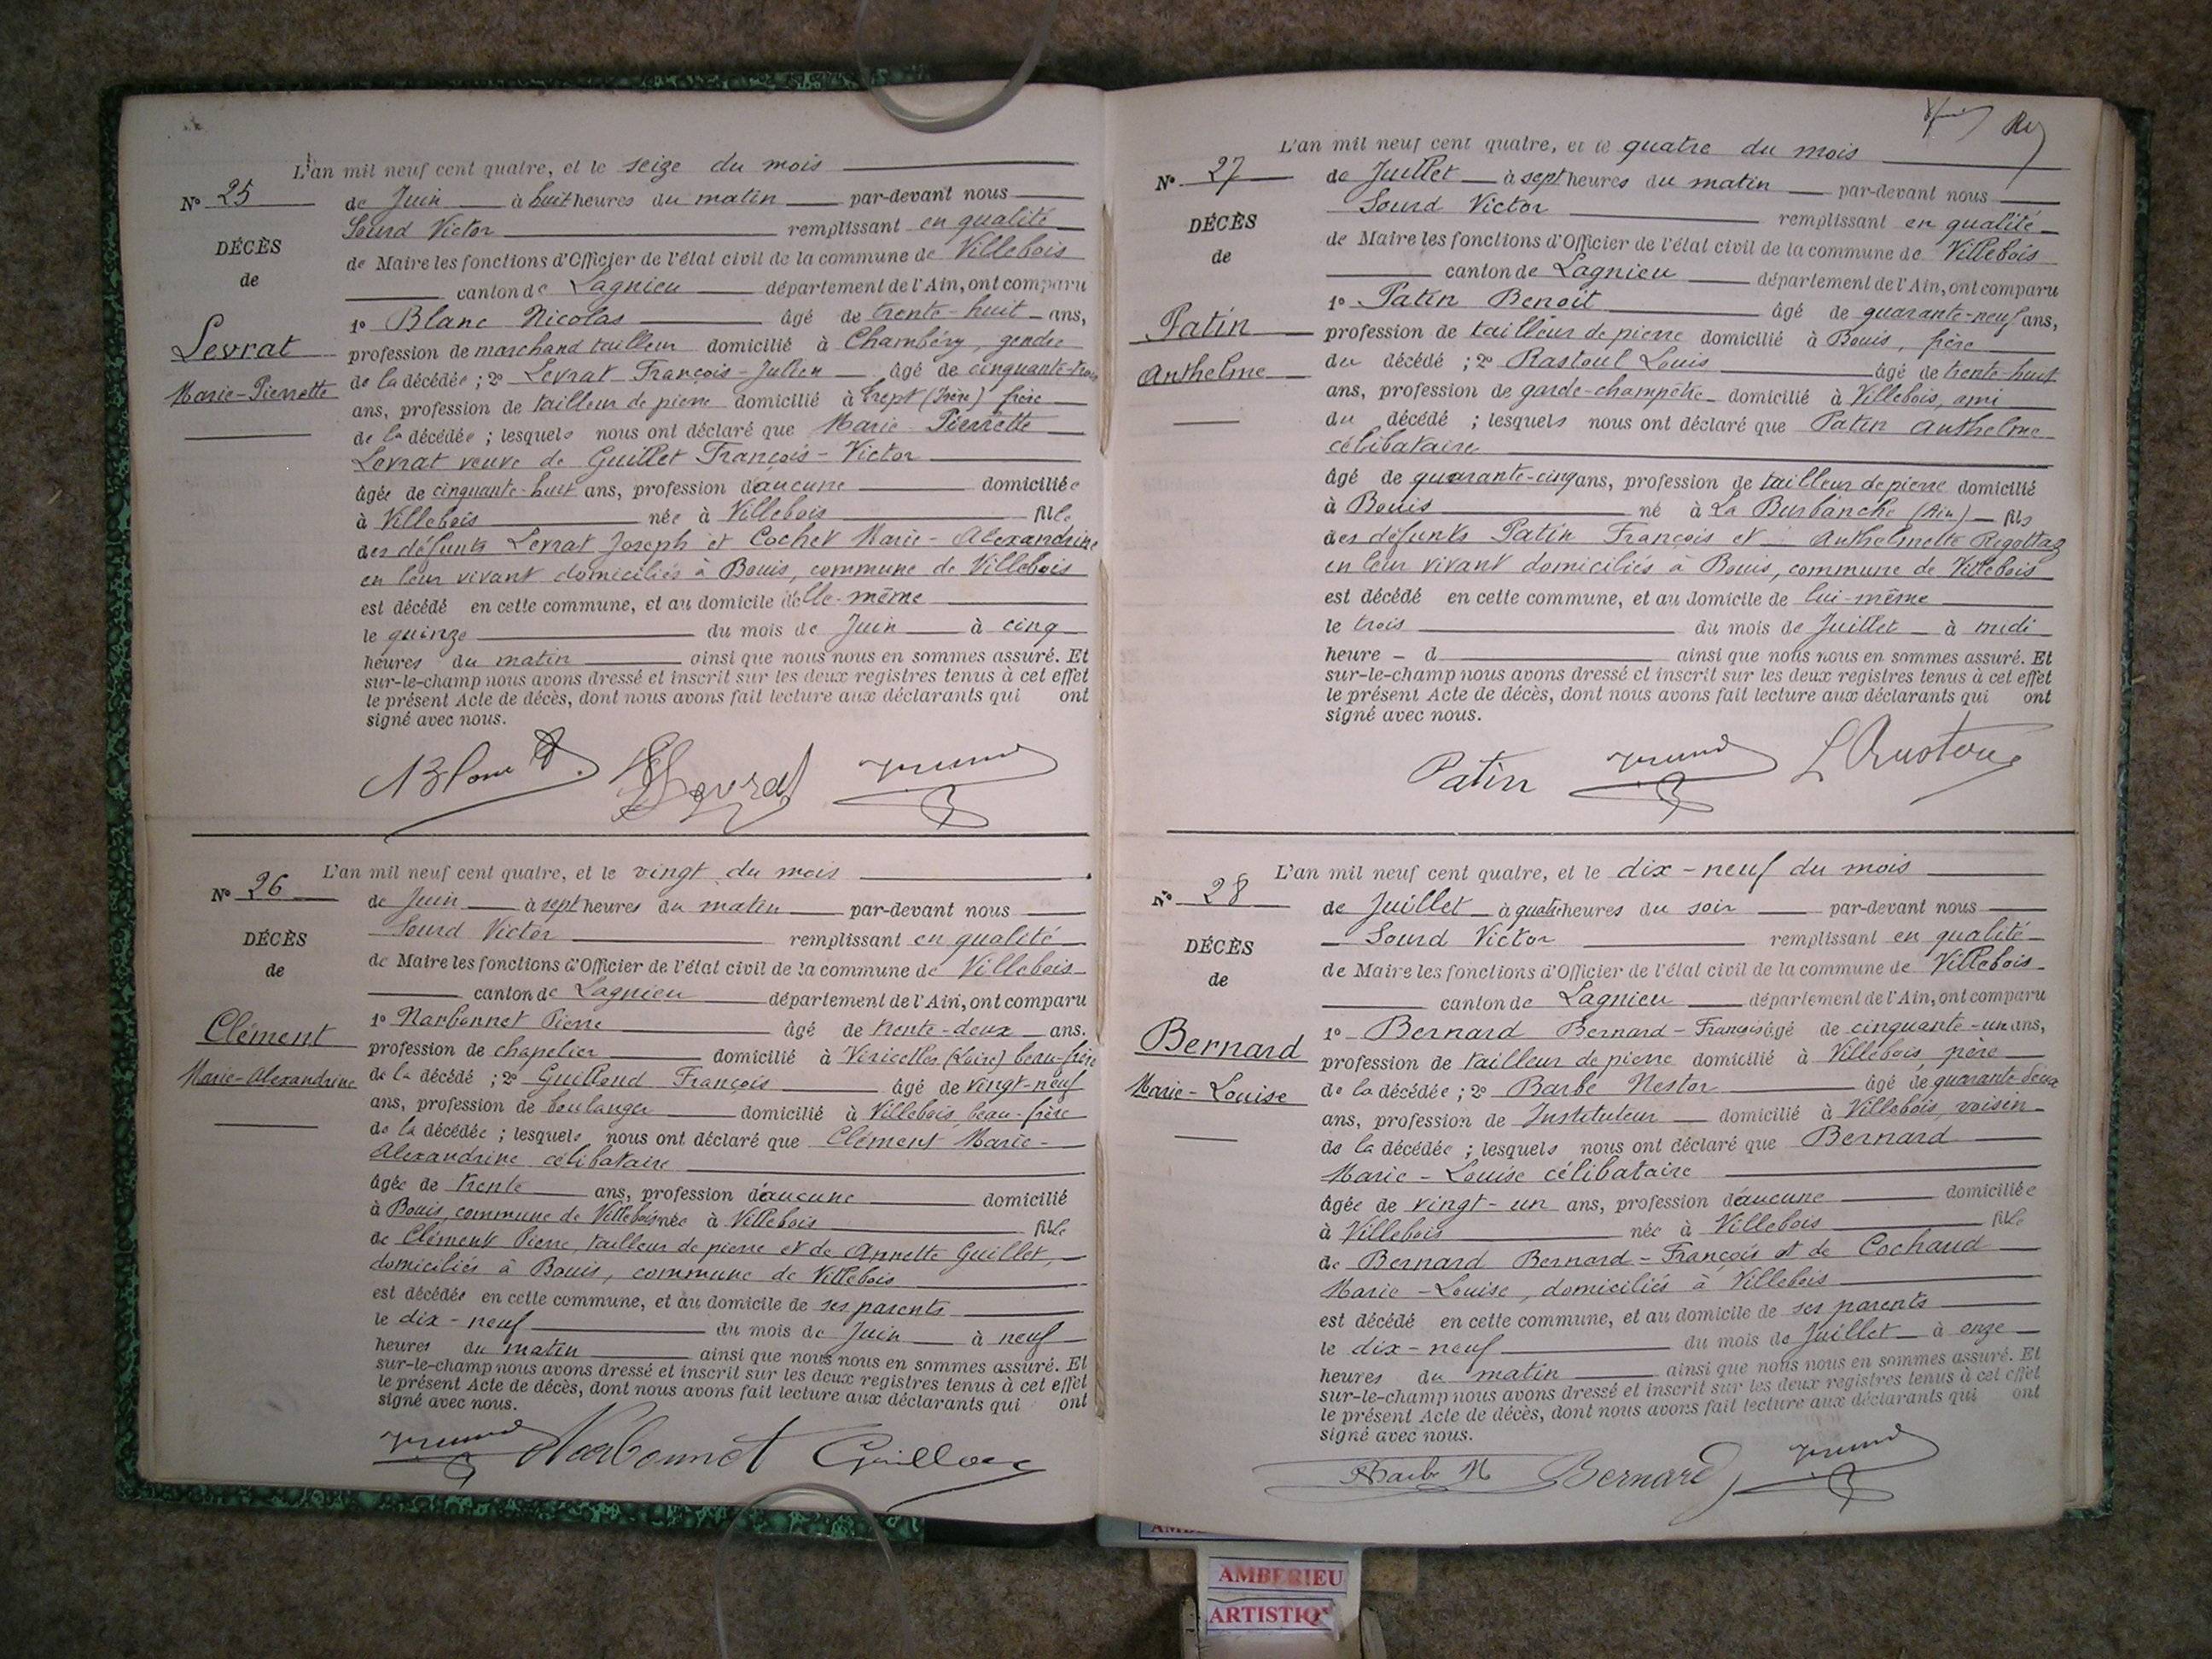 L'an mil neuf cent quatre, et le seize du mois
N° 25
de Juin à huit heures du matin par-devant nous
Sourd Victor remplissant en qualité
DÉCÈS
de Maire les fonctions d'Officier de l'état civil de la commune de Villebois
de
canton de Lagnieu département de l'Ain, ont comparu
1° Blanc Nicolas âgé de trente-huit ans,
Levrat
profession de marchand tailleur domicilié à Chambéry, gendre
Marie-Pierrette
de la décédée ; 2° Levrat François-Julien âgé de cinquante-trois
ans, profession de tailleur de pierre domicilié à Trept (Isère) frère
de la décédée ; lesquels nous ont déclaré que Marie Pierrette
Levrat veuve de Guillet François-Victor
âgée de cinquante-huit ans, profession d'aucune domiciliée
à Villebois née à Villebois fille
des défunts Levrat Joseph et Cochet Marie-Alexandrine
en leur vivant domiciliés à Bouis, commune de Villebois
est décédé en cette commune, et au domicile d'elle-même
le quinze du mois de Juin à cinq
heures du matin ainsi que nous nous en sommes assuré. Et
sur-le-champ nous avons dressé et inscrit sur les deux registres tenus à cet effet
le présent Acte de décès, dont nous avons fait lecture aux déclarants qui ont
signé avec nous.
Levrat
L'an mil neuf cent quatre, et le vingt du mois
N° 26
de Juin à sept heures du matin par-devant nous
Sourd Victor remplissant en qualité
DÉCÈS
de Maire les fonctions d'Officier de l'état civil de la commune de Villebois
de
canton de Lagnieu département de l'Ain, ont comparu
1° Narbonnet Pierre âgé de trente-deux ans.
Clément
profession de chapelier domicilié à (Loire) beau-frère
Marie-Alexandrine
de la décédé ; 2° Guilloud François âgé de vingt-neuf
ans, profession de boulanger domicilié à Villebois, beau-frère
de la décédée ; lesquels nous ont déclaré que Clément Marie-
Alexandrine célibataire
âgée de trente ans, profession d'aucune domicilié
à Bouis, commune de Villebois née à Villebois fille
de Clément Pierre, tailleur de pierre et de Annette Guillet,
domiciliés à Bouis, commune de Villebois
est décédée en cette commune, et au domicile de ses parents
le dix-neuf du mois de Juin à neuf
heures du matin ainsi que nous nous en sommes assuré. Et
sur-le-champ nous avons dressé et inscrit sur les deux registres tenus à cet effet
le présent Acte de décès, dont nous avons fait lecture aux déclarants qui ont
signé avec nous.
Narbonnet
L'an mil neuf cent quatre, et le quatre du mois
N° 27
de Juillet à sept heures du matin par-devant nous
Sourd Victor remplissant en qualité
DÉCÈS
de Maire les fonctions d'Officier de l'état civil de la commune de Villebois
de
canton de Lagnieu département de l'Ain, ont comparu
1° Patin Benoit âgé de quarante-neuf ans,
Patin
profession de tailleur de pierre domicilié à Bouis, frère
Anthelme
du décédé ; 2° Rastoul Louis âgé de trente-huit
ans, profession de garde-champêtre domicilié à Villebois, ami
du décédé ; lesquels nous ont déclaré que Patin Anthelme
célibataire
âgé de quarante-cinq ans, profession de tailleur de pierre domicilié
à Bouis né à La Burbanche (Ain) fils
des défunts Patin François et Anthelmette Rigottaz
en leur vivant domiciliés à Bouis, commune de Villebois
est décédé en cette commune, et au domicile de lui-même
le trois du mois de Juillet à midi
heure - d ainsi que nous nous en sommes assuré. Et
sur-le-champ nous avons dressé et inscrit sur les deux registres tenus à cet effet
le présent Acte de décès, dont nous avons fait lecture aux déclarants qui ont
signé avec nous.
Patin
L'an mil neuf cent quatre, et le dix-neuf du mois
N° 28
de Juillet à quatre heures du soir par-devant nous
Sourd Victor remplissant en qualité
DÉCÈS
de Maire les fonctions d'Officier de l'état civil de la commune de Villebois
de
canton de Lagnieu département de l'Ain, ont comparu
1° Bernard Bernard-François âgé de cinquante-un ans,
Bernard
profession de tailleur de pierre domicilié à Villebois, père
Marie-Louise
de la décédée ; 2° Barbe Nestor âgé de quarante-deux
ans, profession de Instituteur domicilié à Villebois, voisin
de la décédée ; lesquels nous ont déclaré que Bernard
Marie-Louise célibataire
âgée de vingt-un ans, profession d'aucune domiciliée
à Villebois née à Villebois fille
de Bernard Bernard-François et de Cochaud
Marie-Louise, domiciliés à Villebois
est décédé en cette commune, et au domicile de ses parents
le dix-neuf du mois de Juillet à onze
heures du matin ainsi que nous nous en sommes assuré. Et
sur-le-champ nous avons dressé et inscrit sur les deux registres tenus à cet effet
le présent Acte de décès, dont nous avons fait lecture aux déclarants qui ont
signé avec nous.
Barbe N Bernard
AMBERIEU
ARTISTIQ